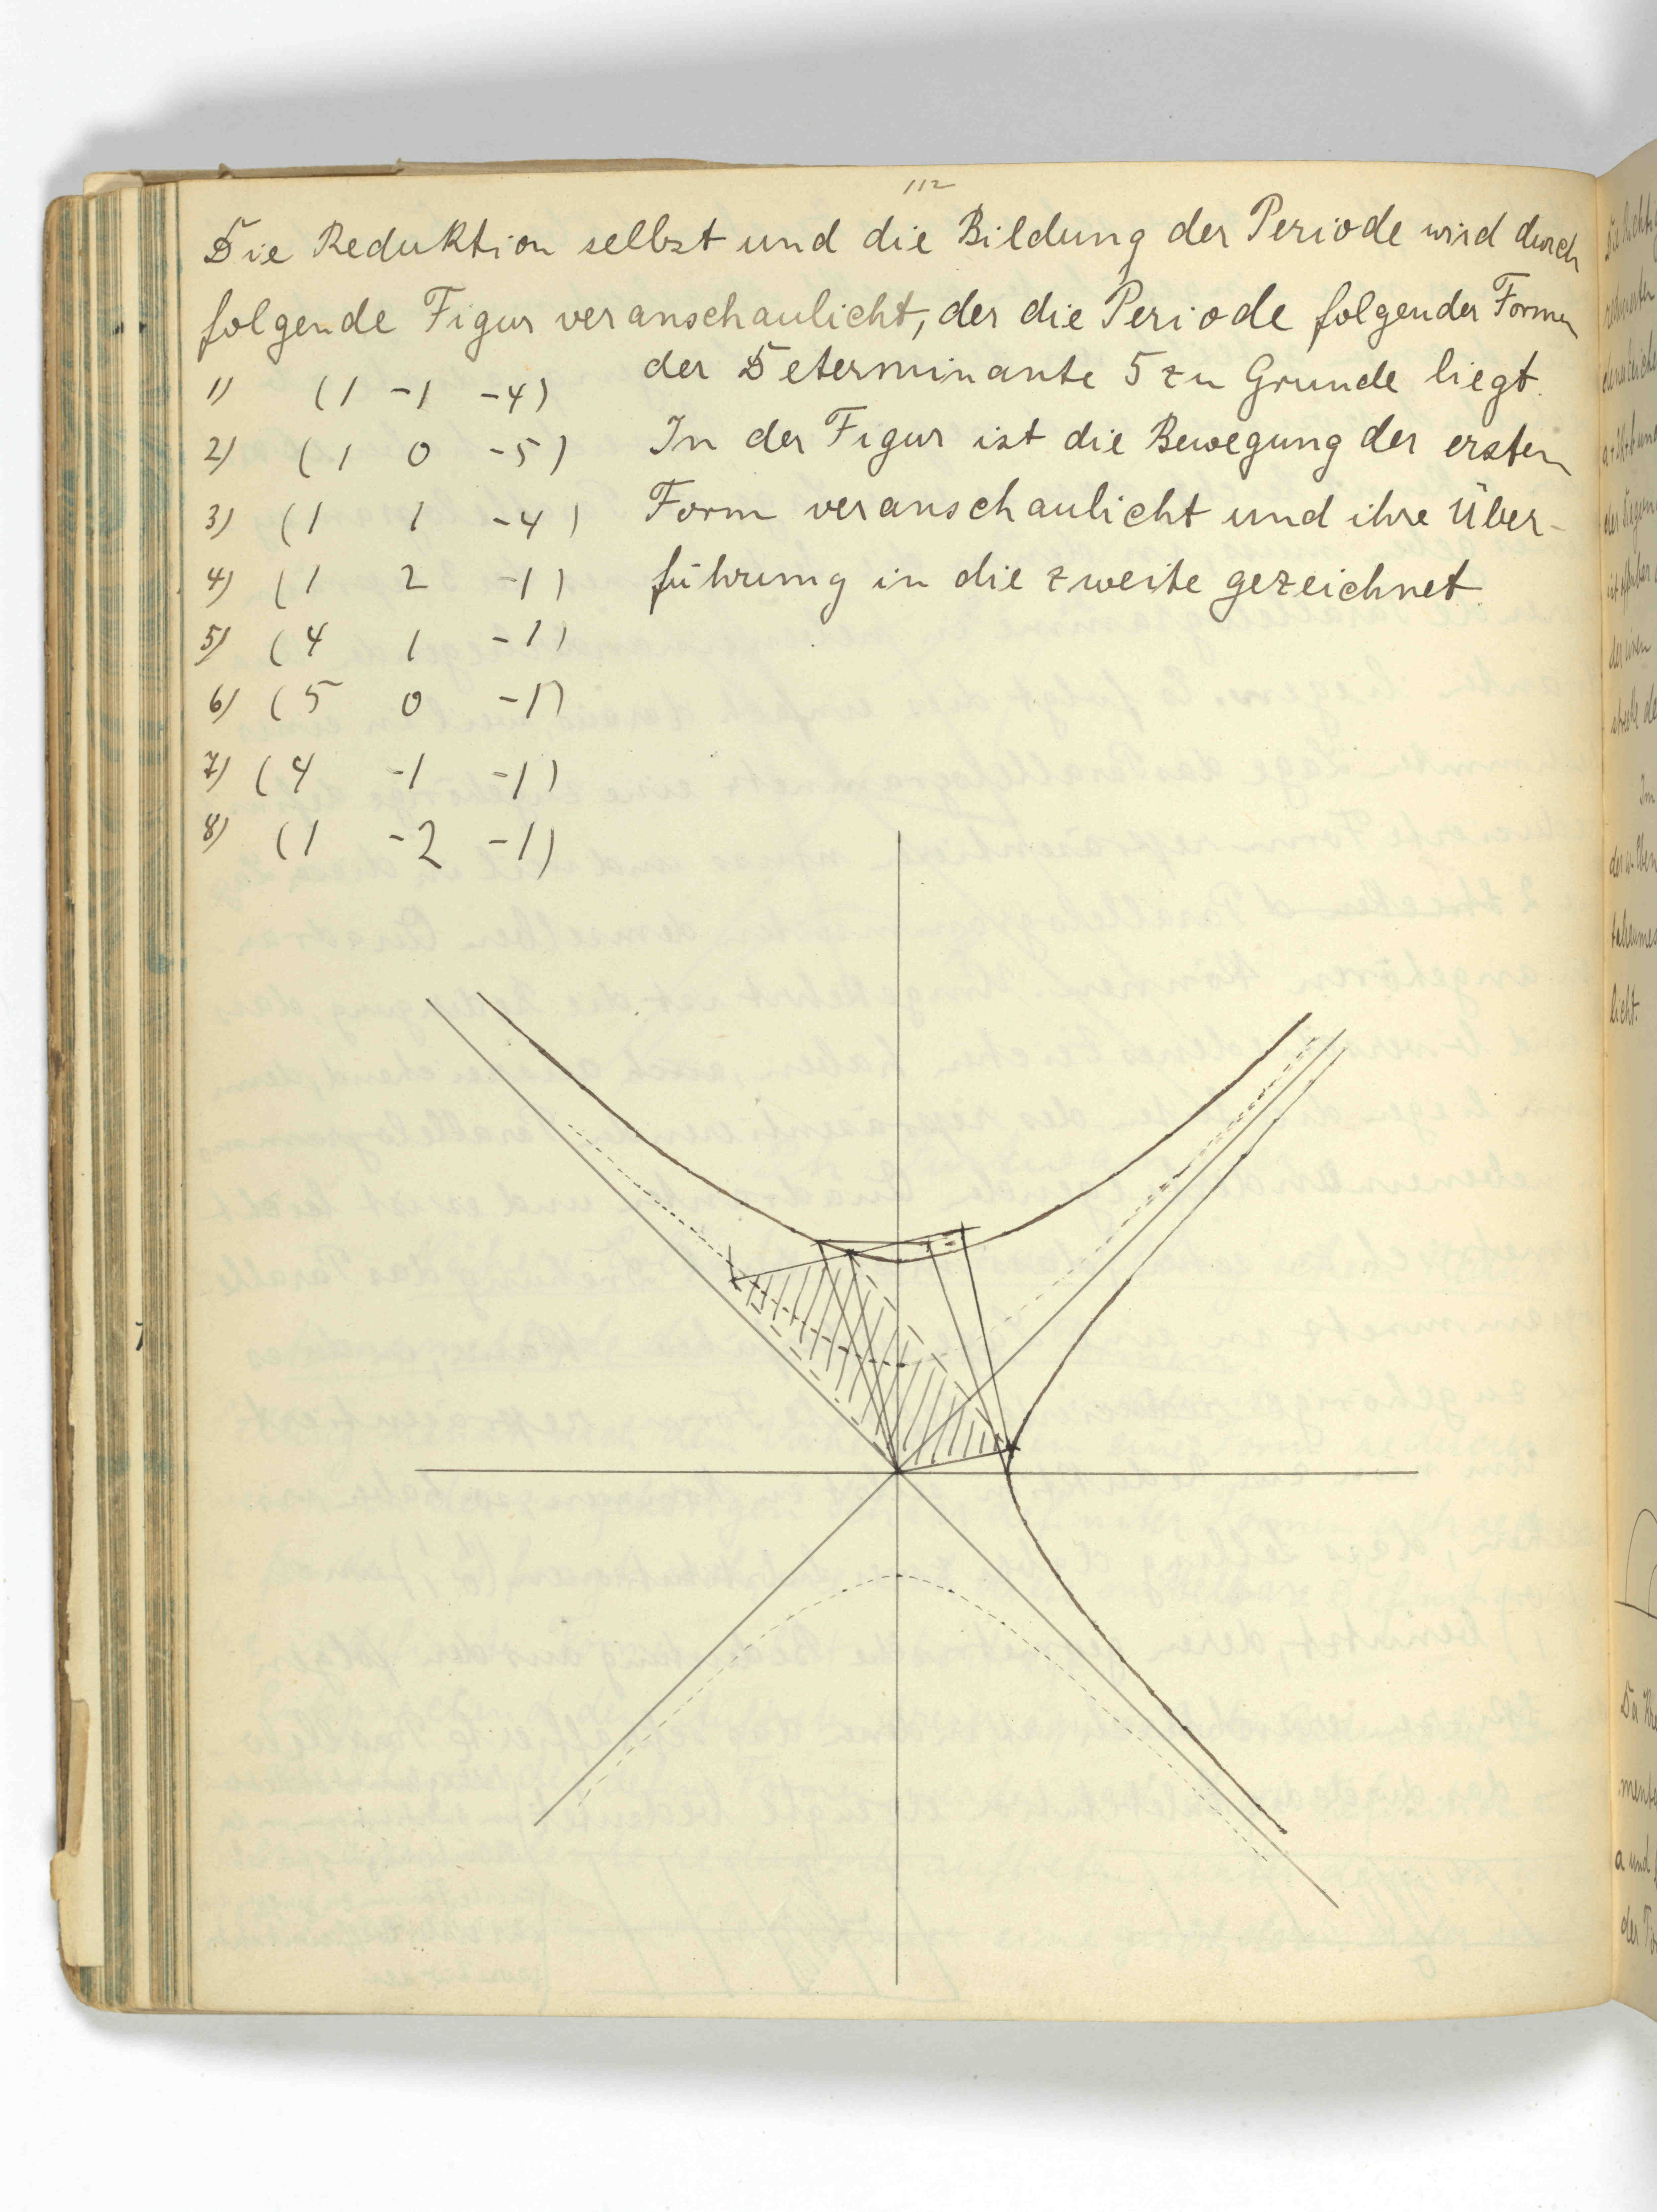 112
Die Reduktion selbst und die Bildung der Periode wird durch
folgende Figur veranschaulicht, der die Periode folgender Formen
der Determinante 5 zu Grunde liegt.
1) (1 -1 -4)
2) (1 0 -5)
3) (1 1 -4)
4) (1 2 -1)
5) (4 1 -1)
6) (5 0 -1)
7) (4 -1 -1)
8) (1 -2 -1)
In der Figur ist die Bewegung der ersten
Form veranschaulicht und ihre Über-
führung in die zweite gezeichnet